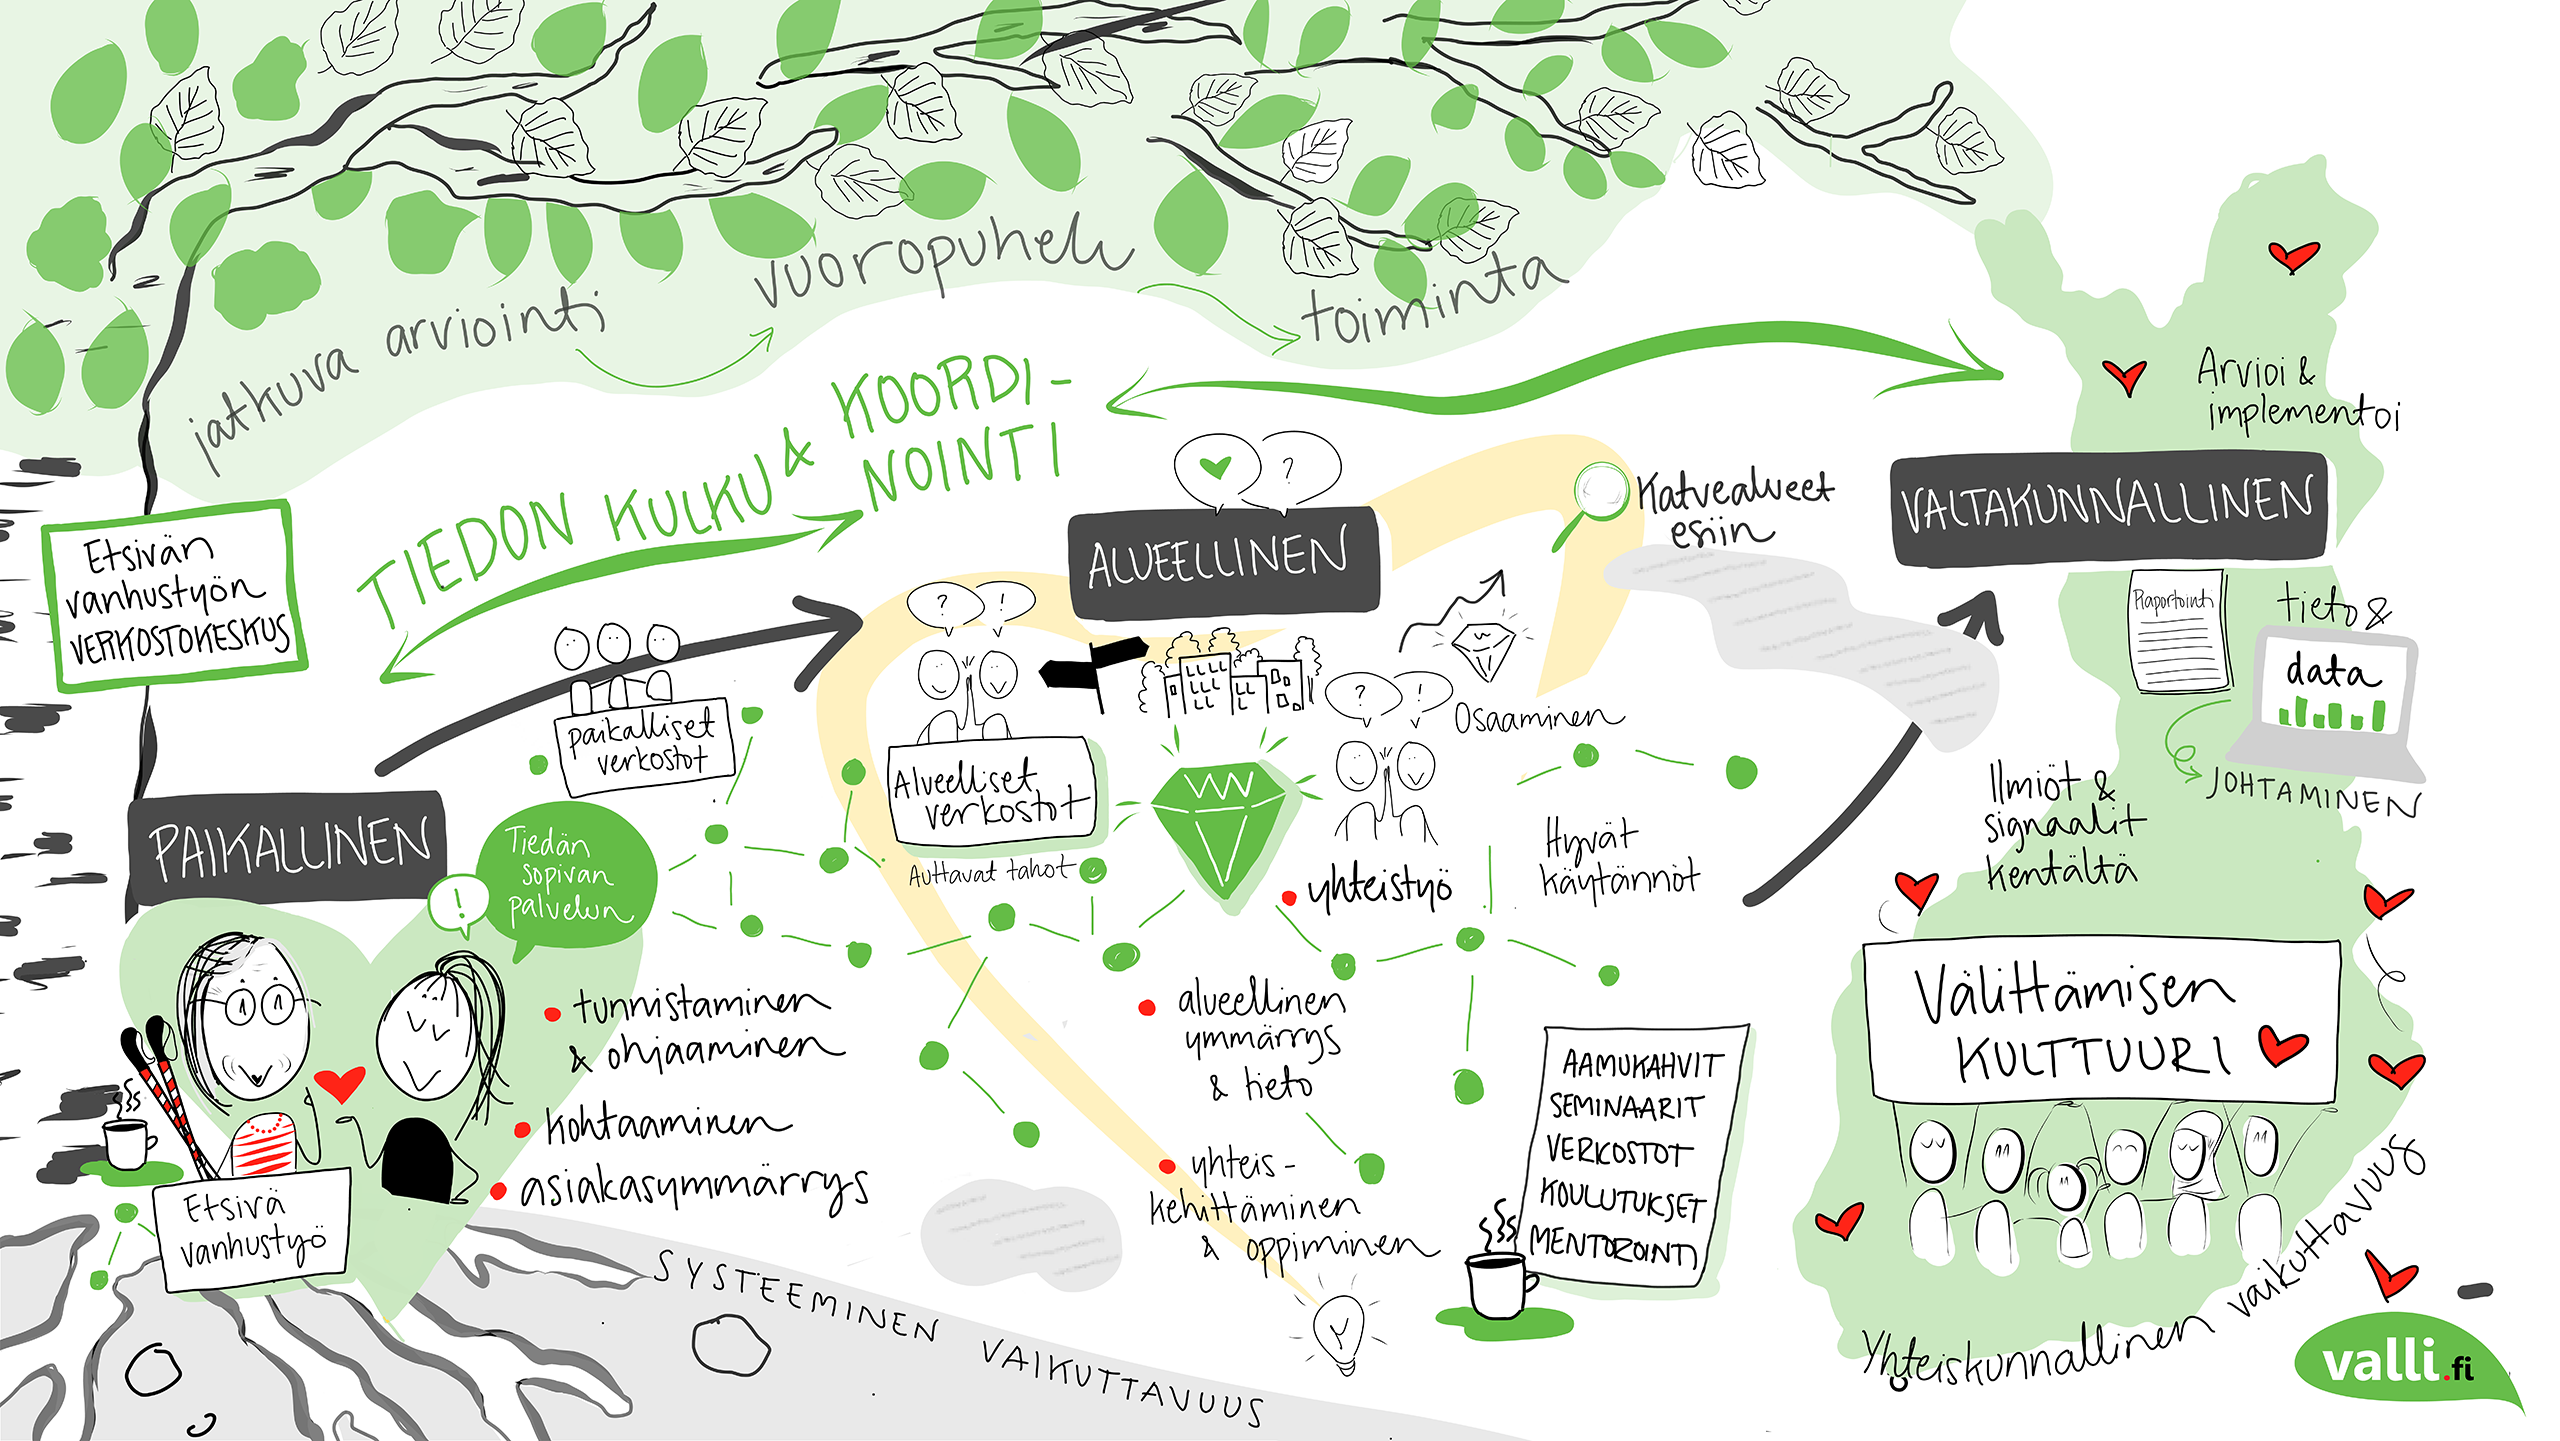 jatkuva arviointi
vuoropuhelu
toiminta
TIEDON KULKU & KOORDI-
NOINTI
Etsivän
vanhustyön
VERKOSTOKESKUS
PAIKALLINEN
Tiedän
sopivan
palvelun
!
paikalliset
verkostot
• tunnistaminen
& ohjaaminen
• kohtaaminen
• asiakasymmärrys
Etsivä
vanhustyö
SYSTEEMINEN VAIKUTTAVUUS
?
ALUEELLINEN
? !
Alueelliset
verkostot
Auttavat tahot
? !
Osaaminen
• yhteistyö
Hyvät
käytännöt
• alueellinen
ymmärrys
& tieto
• yhteis-
kehittäminen
& oppiminen
AAMUKAHVIT
SEMINAARIT
VERKOSTOT
KOULUTUKSET
MENTOROINTI
Katvealueet
esiin
Arvioi &
implementoi
VALTAKUNNALLINEN
Raportointi
tieto &
data
JOHTAMINEN
Ilmiöt &
signaalit
kentältä
Välittämisen
KULTTUURI
Yhteiskunnallinen vaikuttavuus
valli.fi